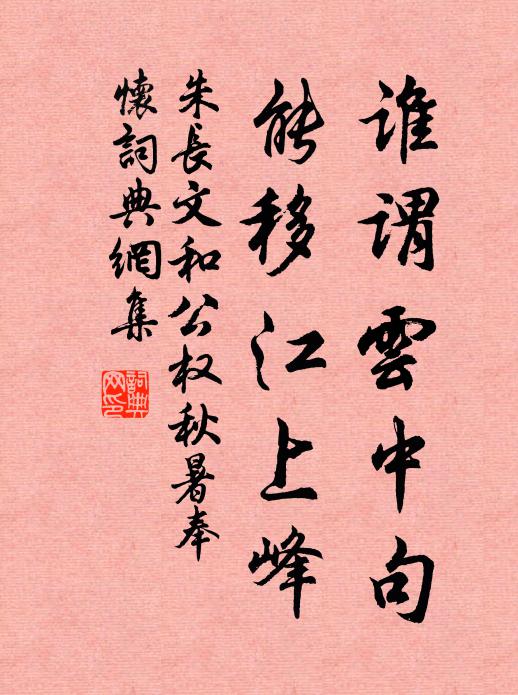 誰謂雲中句
能移江上峰
朱長文和公权秋暑奉
懷詞典網集
詞典
网印